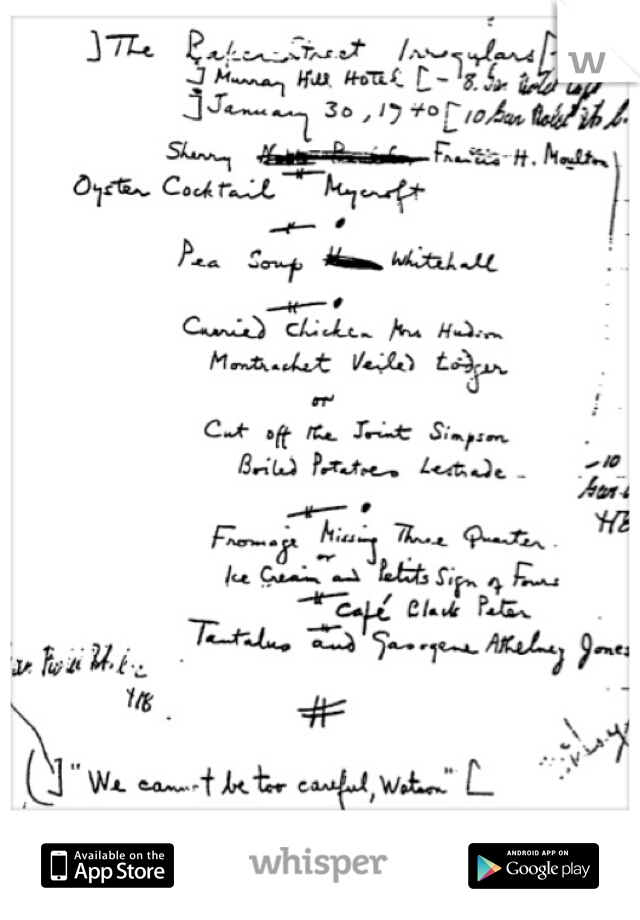 W
] The Baker Street Irregulars [
] Murray Hill Hotel [ - 8.
] January 30, 1940 [ 10
Sherry Francis H. Moulton
Oyster Cocktail Mycroft
Pea Soup Whitehall
Curried Chicken Mrs Hudson
Montrachet Veiled Lodger
or
Cut off the Joint Simpson
Boiled Potatoes Lestrade -
- 10
Fromage Missing Three Quarter.
or
Ice Cream and Petits Sign of Fours
Café Black Peter
Tantalus and Gasogene Athelney Jones
#
(] "We cannot be too careful, Watson" [
Available on the
App Store
whisper
ANDROID APP ON
Google play